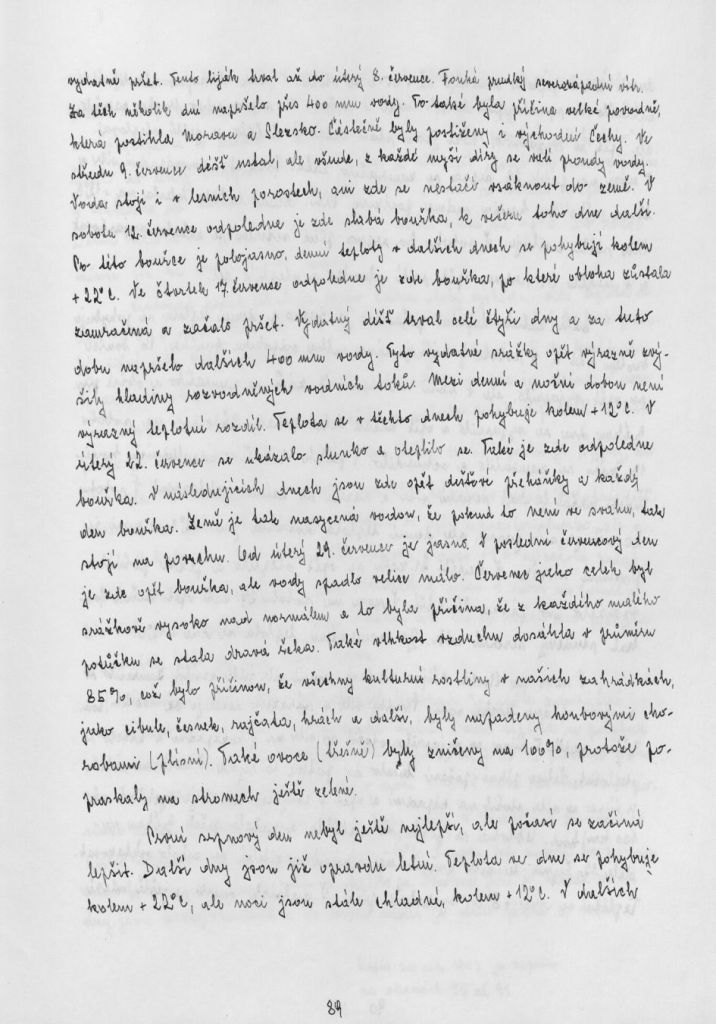 vydatně pršet. Tento liják trval až do úterý 8. července. Fouká prudký severozápadní vítr.
Za těch několik dní napršelo přes 400 mm vody. To také byla příčina velké povodně,
která postihla Moravu a Slezsko. Částečně byly postiženy i východní Čechy. Ve
středu 9. července déšť ustal, ale všude, z každé myší díry se valí proudy vody.
Voda stojí i v lesních porostech, ani zde se nestačí vsáknout do země. V
sobotu 12. července odpoledne je zde slabá bouřka, k večeru toho dne další.
Po této bouřce je polojasno, denní teploty v dalších dnech se pohybují kolem
+ 22°C. Ve čtvrtek 17. července odpoledne je zde bouřka, po které obloha zůstala
zamračená a začalo pršet. Vydatný déšť trval celé čtyři dny a za tuto
dobu napršelo dalších 400 mm vody. Tyto vydatné srážky opět výrazně zvý-
šily hladiny rozvodněných vodních toků. Mezi denní a noční dobou není
výrazný teplotní rozdíl. Teplota se v těchto dnech pohybuje kolem + 12°C. V
úterý 22. července se ukázalo slunko a oteplilo se. Také je zde odpoledne
bouřka. V následujících dnech jsou zde opět dešťové přeháňky a každý
den bouřka. Země je tak nasycená vodou, že pokud to není ve svahu, tak
stojí na povrchu. Od úterý 29. července je jasno. V poslední červencový den
je zde opět bouřka, ale vody spadlo velice málo. Červenec jako celek byl
srážkově vysoko nad normálem a to byla příčina, že z každého malého
potůčku se stala dravá řeka. Také vlhkost vzduchu dosáhla v průměru
85%, což bylo příčinou, že všechny kulturní rostliny v našich zahrádkách,
jako cibule, česnek, rajčata, hrách a další, byly napadeny houbovými cho-
robami (plísní). Také ovoce (třešně) byly zničeny na 100%, protože po-
praskaly na stromech ještě zelené.
První srpnový den nebyl ještě nejlepší, ale počasí se začíná
lepšit. Další dny jsou již opravdu letní. Teplota ve dne se pohybuje
kolem + 22°C, ale noci jsou stále chladné, kolem + 12°C. V dalších
89